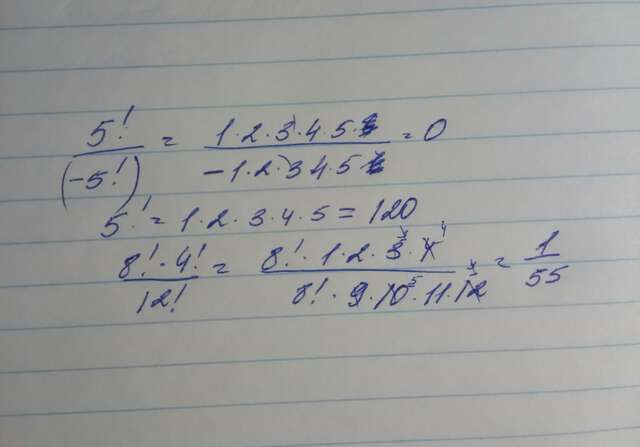 5! / (-5!) = 1·2·3·4·5 / -1·2·3·4·5 = 0
5! = 1·2·3·4·5 = 120
8!·4! / 12! = 8!·1·2·3·4 / 8!·9·10·11·12 = 1 / 55